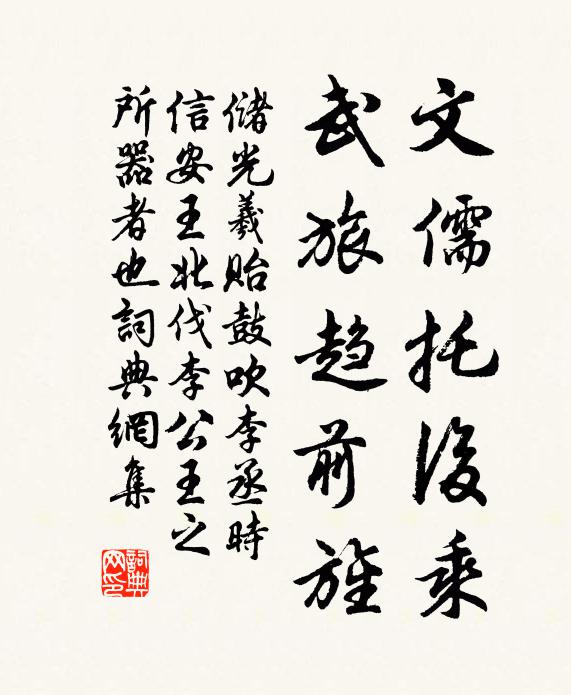 文儒托後乘
武旅趋前旌
儲光羲貽鼓吹李丞時
信安王北伐李公王之
所器者也詞典網集
詞典網印